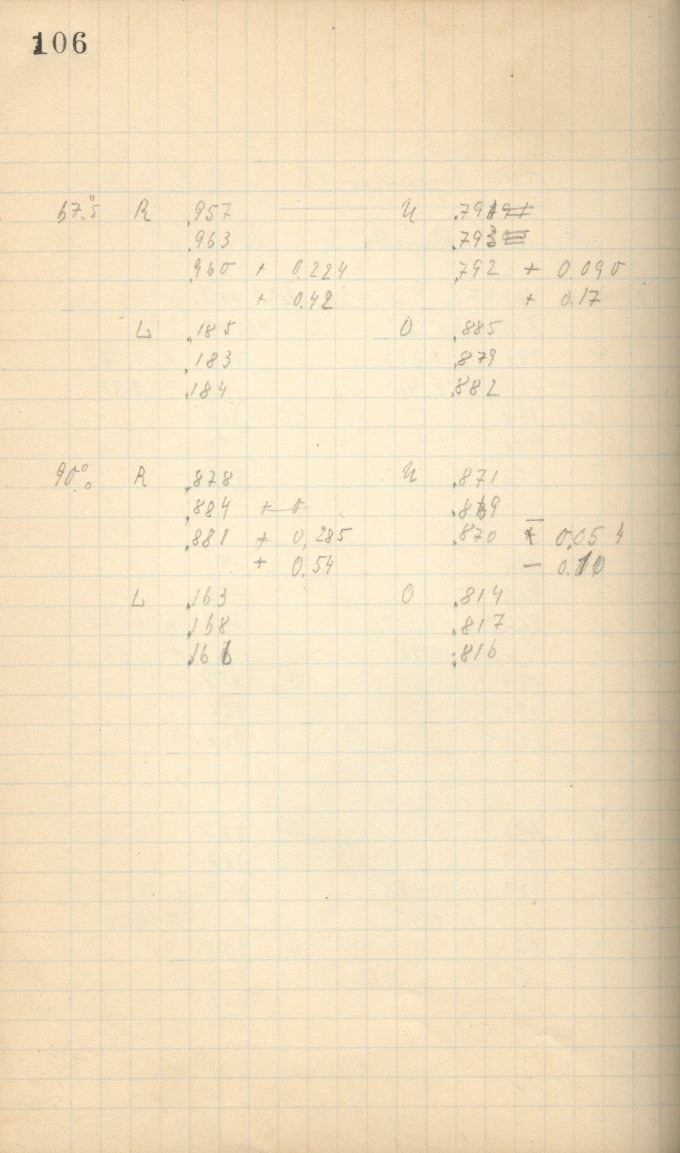 106
67.°5 R .957 U .791
.963 .793
.960 + 0.224 .792 + 0.090
+ 0.42 + 0.17
L .185 O .885
.183 .879
.184 .882
90.°0 R .878 U .871
.884 + 0 .869
.881 + 0.285 .870 - 0.054
+ 0.54 - 0.10
L .163 O .814
.168 .817
.166 .816